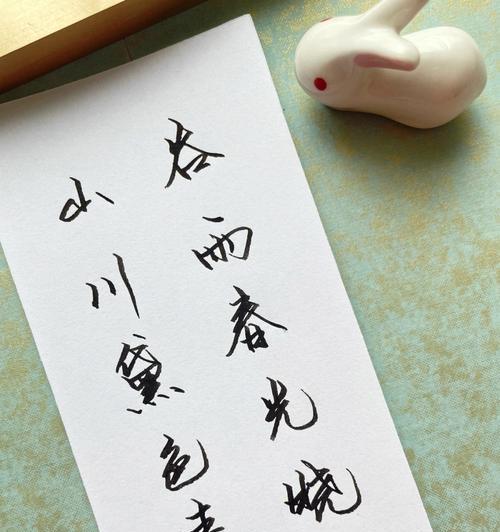 谷雨春光晓
山川黛色青